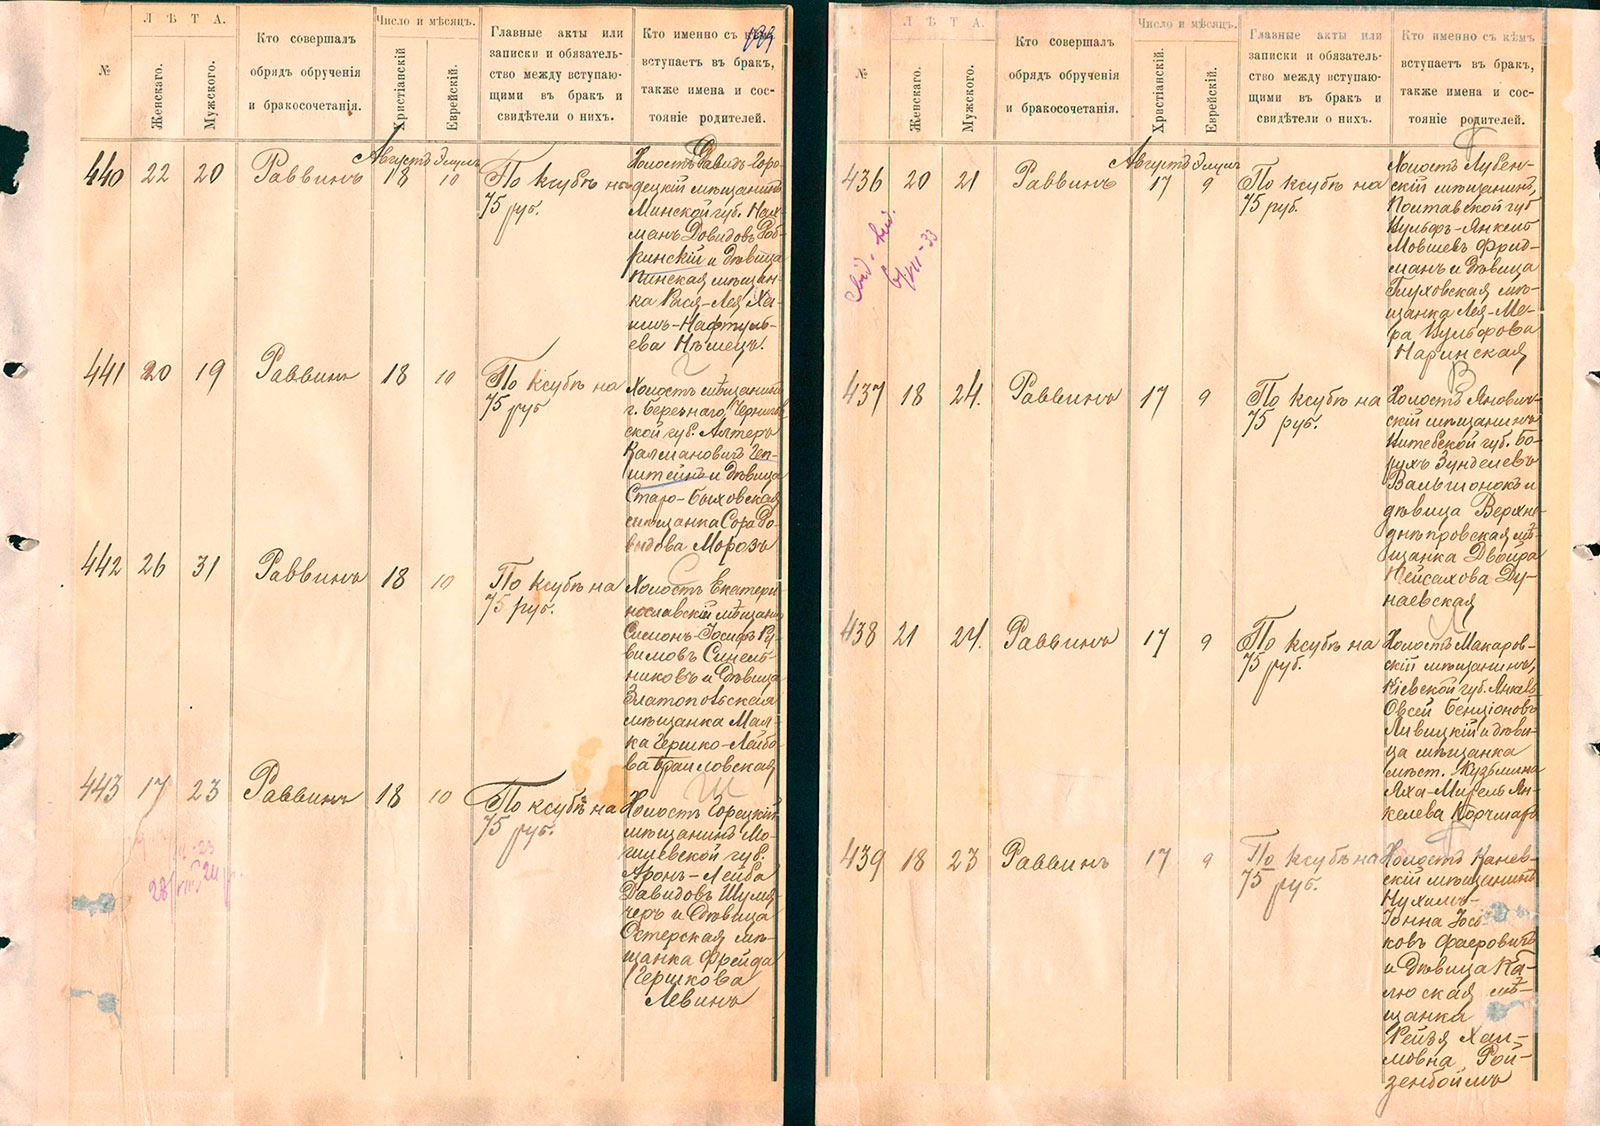 Л Ѣ Т А.
Число и мѣсяцъ.
№
Женскаго.
Мужского.
Кто совершалъ
обрядъ обрученія
и бракосочетанія.
Христіанскій
Еврейскій.
Главные акты или
записки и обязатель-
ство между вступаю-
щими въ бракъ и
свидѣтели о нихъ.
Кто именно съ
вступаетъ въ бракъ,
также имена и сос-
тояніе родителей.
Августъ Элулъ
440 22 20 Раввинъ 18 10 По ксубѣ на
75 руб.
Холостъ Давидъ-Горо-
децкій мѣщанинъ
Минской губ. Нах-
манъ Довидовъ Доб-
ринскій и дѣвица
Пинская мѣщан-
ка Рася-Лея Ха-
имъ-Нафтуль-
ева Нѣмецъ.
441 20 19 Раввинъ 18 10 По ксубѣ на
75 руб
Холостъ мѣщанинъ
г. Березнаго, Чернигов
ской губ. Алтеръ
Калмановичъ Чеп-
штейнъ и дѣвица
Старо-Быховская
мѣщанка Сора До-
видова Морозъ
442 26 31 Раввинъ 18 10 По ксубѣ на
75 руб.
Холостъ Екатери-
нославскій мѣщанин
Симонъ-Іосифъ Ру-
вимовъ Синель-
никовъ и дѣвица
Златопольская
мѣщанка Мал-
ка Гершко-Лейбо-
ва Браиловская
443 17 23 Раввинъ 18 10 По ксубѣ на
75 руб.
Холостъ Горецкій
мѣщанинъ Мо-
гилевской губ.
Аронъ-Лейба
Давидовъ Шумя-
черъ и дѣвица
Остерская мѣ-
щанка Фрейда
Гершкова
Левинъ
Л Ѣ Т А.
Число и мѣсяцъ.
№
Женскаго.
Мужского.
Кто совершалъ
обрядъ обрученія
и бракосочетанія.
Христіанскій
Еврейскій.
Главные акты или
записки и обязатель-
ство между вступаю-
щими въ бракъ и
свидѣтели о нихъ.
Кто именно съ кѣмъ
вступаетъ въ бракъ,
также имена и сос-
тояніе родителей.
Августъ Элулъ
436 20 21 Раввинъ 17 9 По ксубѣ на
75 руб.
Холостъ Лубен-
скій мѣщанинъ,
Полтавской губ
Вульфъ-Янкель
Мовшевъ Фрид-
манъ и дѣвица
Глуховская мѣ-
щанка Лея-Ме-
ра Вульфова
Наринская
437 18 24. Раввинъ 17 9 По ксубѣ на
75 руб.
Холостъ Янович-
скій мѣщанинъ
Витебской губ. Бо-
рухъ Зунделевъ
Вальшонокъ и
дѣвица Верхне-
днѣпровская мѣ-
щанка Двойра
Пейсахова Ду-
наевская
438 21 24. Раввинъ 17 9 По ксубѣ на
75 руб.
Холостъ Макаров-
скій мѣщанинъ,
Кіевской губ. Янкель
Овсей Бенціоновъ
Ливицкій и дѣви-
ца мѣщанка
мѣст. Кузьмина
Яха-Мирель Ян-
келева Корчмаръ
439 18 23 Раввинъ 17 9 По ксубѣ на
75 руб.
Холостъ Канев-
скій мѣщанинъ
Нухимъ-
Іонна Іось-
ковъ Фаеровичъ
и дѣвица Ка-
люская мѣ-
щанка
Рейзя Хаи-
мовна Рой-
зенбоймъ